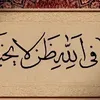 في الله ظن لا